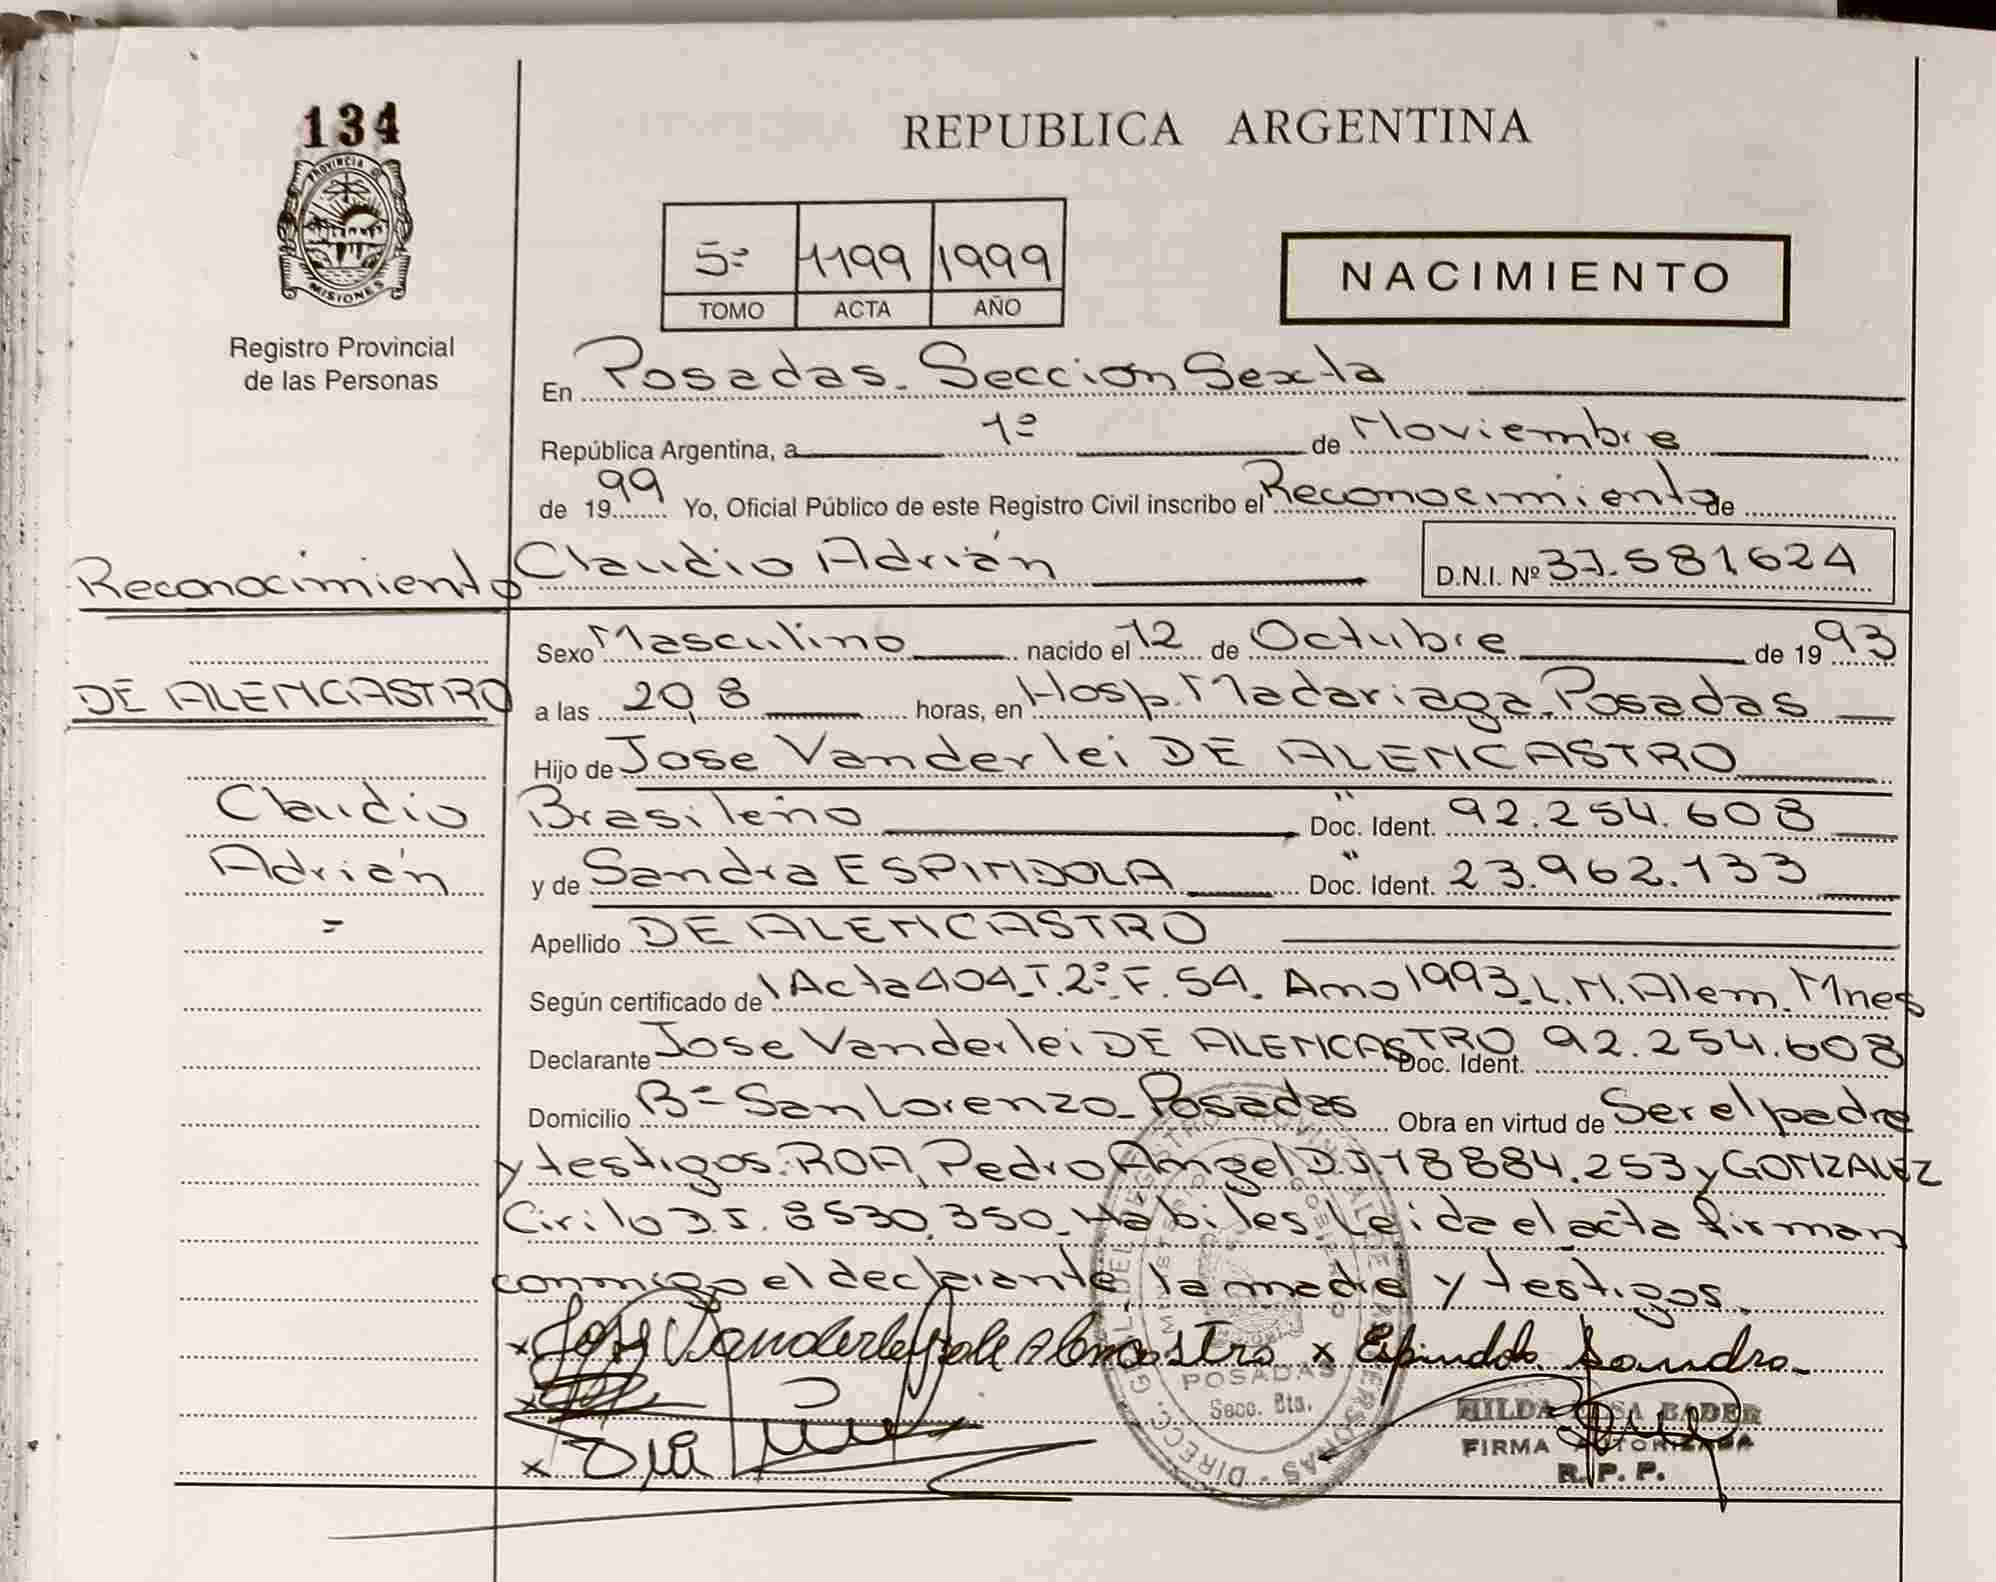 134
PROVINCIA DE
MISIONES
Registro Provincial
de las Personas
REPUBLICA ARGENTINA
5º 1199 1999
TOMO ACTA AÑO
NACIMIENTO
En Posadas. Sección Sexta
República Argentina, a 1º de Noviembre
de 1999 Yo, Oficial Público de este Registro Civil inscribo el Reconocimiento de
Reconocimiento Claudio Adrián D.N.I. Nº 37.581624
Sexo Masculino nacido el 12 de Octubre de 1993
DE ALENCASTRO a las 20,8 horas, en Hosp. Madariaga. Posadas
Hijo de Jose Vanderlei DE ALENCASTRO
Claudio Brasileño Doc. Ident. 92.254.608
Adrián y de Sandra ESPINDOLA Doc. Ident. 23.962.133
= Apellido DE ALENCASTRO
Según certificado de Acta 404. T. 2º. F. 54. Año 1993. L.N. Alem. Mnes
Declarante Jose Vanderlei DE ALENCASTRO Doc. Ident. 92.254.608
Domicilio Bº San Lorenzo. Posadas Obra en virtud de Ser el padre
y testigos. ROA, Pedro Angel D.I. 18884.253 y GONZALEZ
Cirilo D.I. 8530.350. Habiles Leida el acta firman
conmigo el declarante la madre y testigos.
x Jose Vanderley de Alencastro x Espindola Sandra
POSADAS
Secc. 6ta.
HILDA ROSA BADER
FIRMA AUTORIZADA
R. P. P.